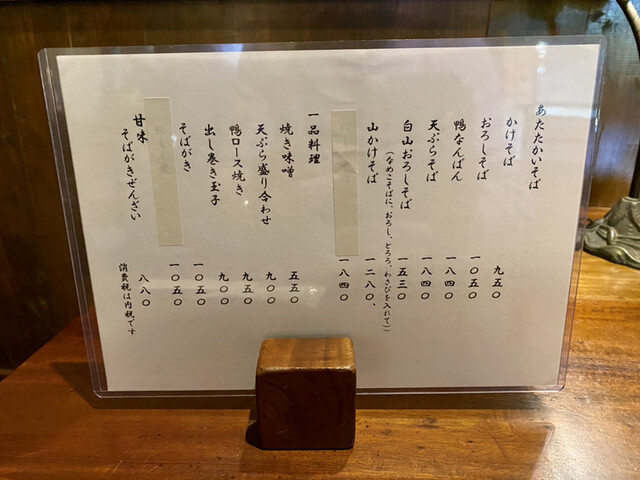 あたたかいそば
かけそば 九五〇
おろしそば 一〇五〇
鴨なんばん 一八四〇
天ぷらそば 一八四〇
白山おろしそば 一五三〇
(なめこそばに、おろし、とろろ、わさびを入れて)
山かけそば 一二八〇、
一八四〇
一品料理
焼き味噌 五五〇
天ぷら盛り合わせ 九〇〇
鴨ロース焼き 九五〇
出し巻き玉子 九〇〇
そばがき 一〇五〇
一〇五〇
甘味
そばがきぜんざい 八八〇
消費税は内税です